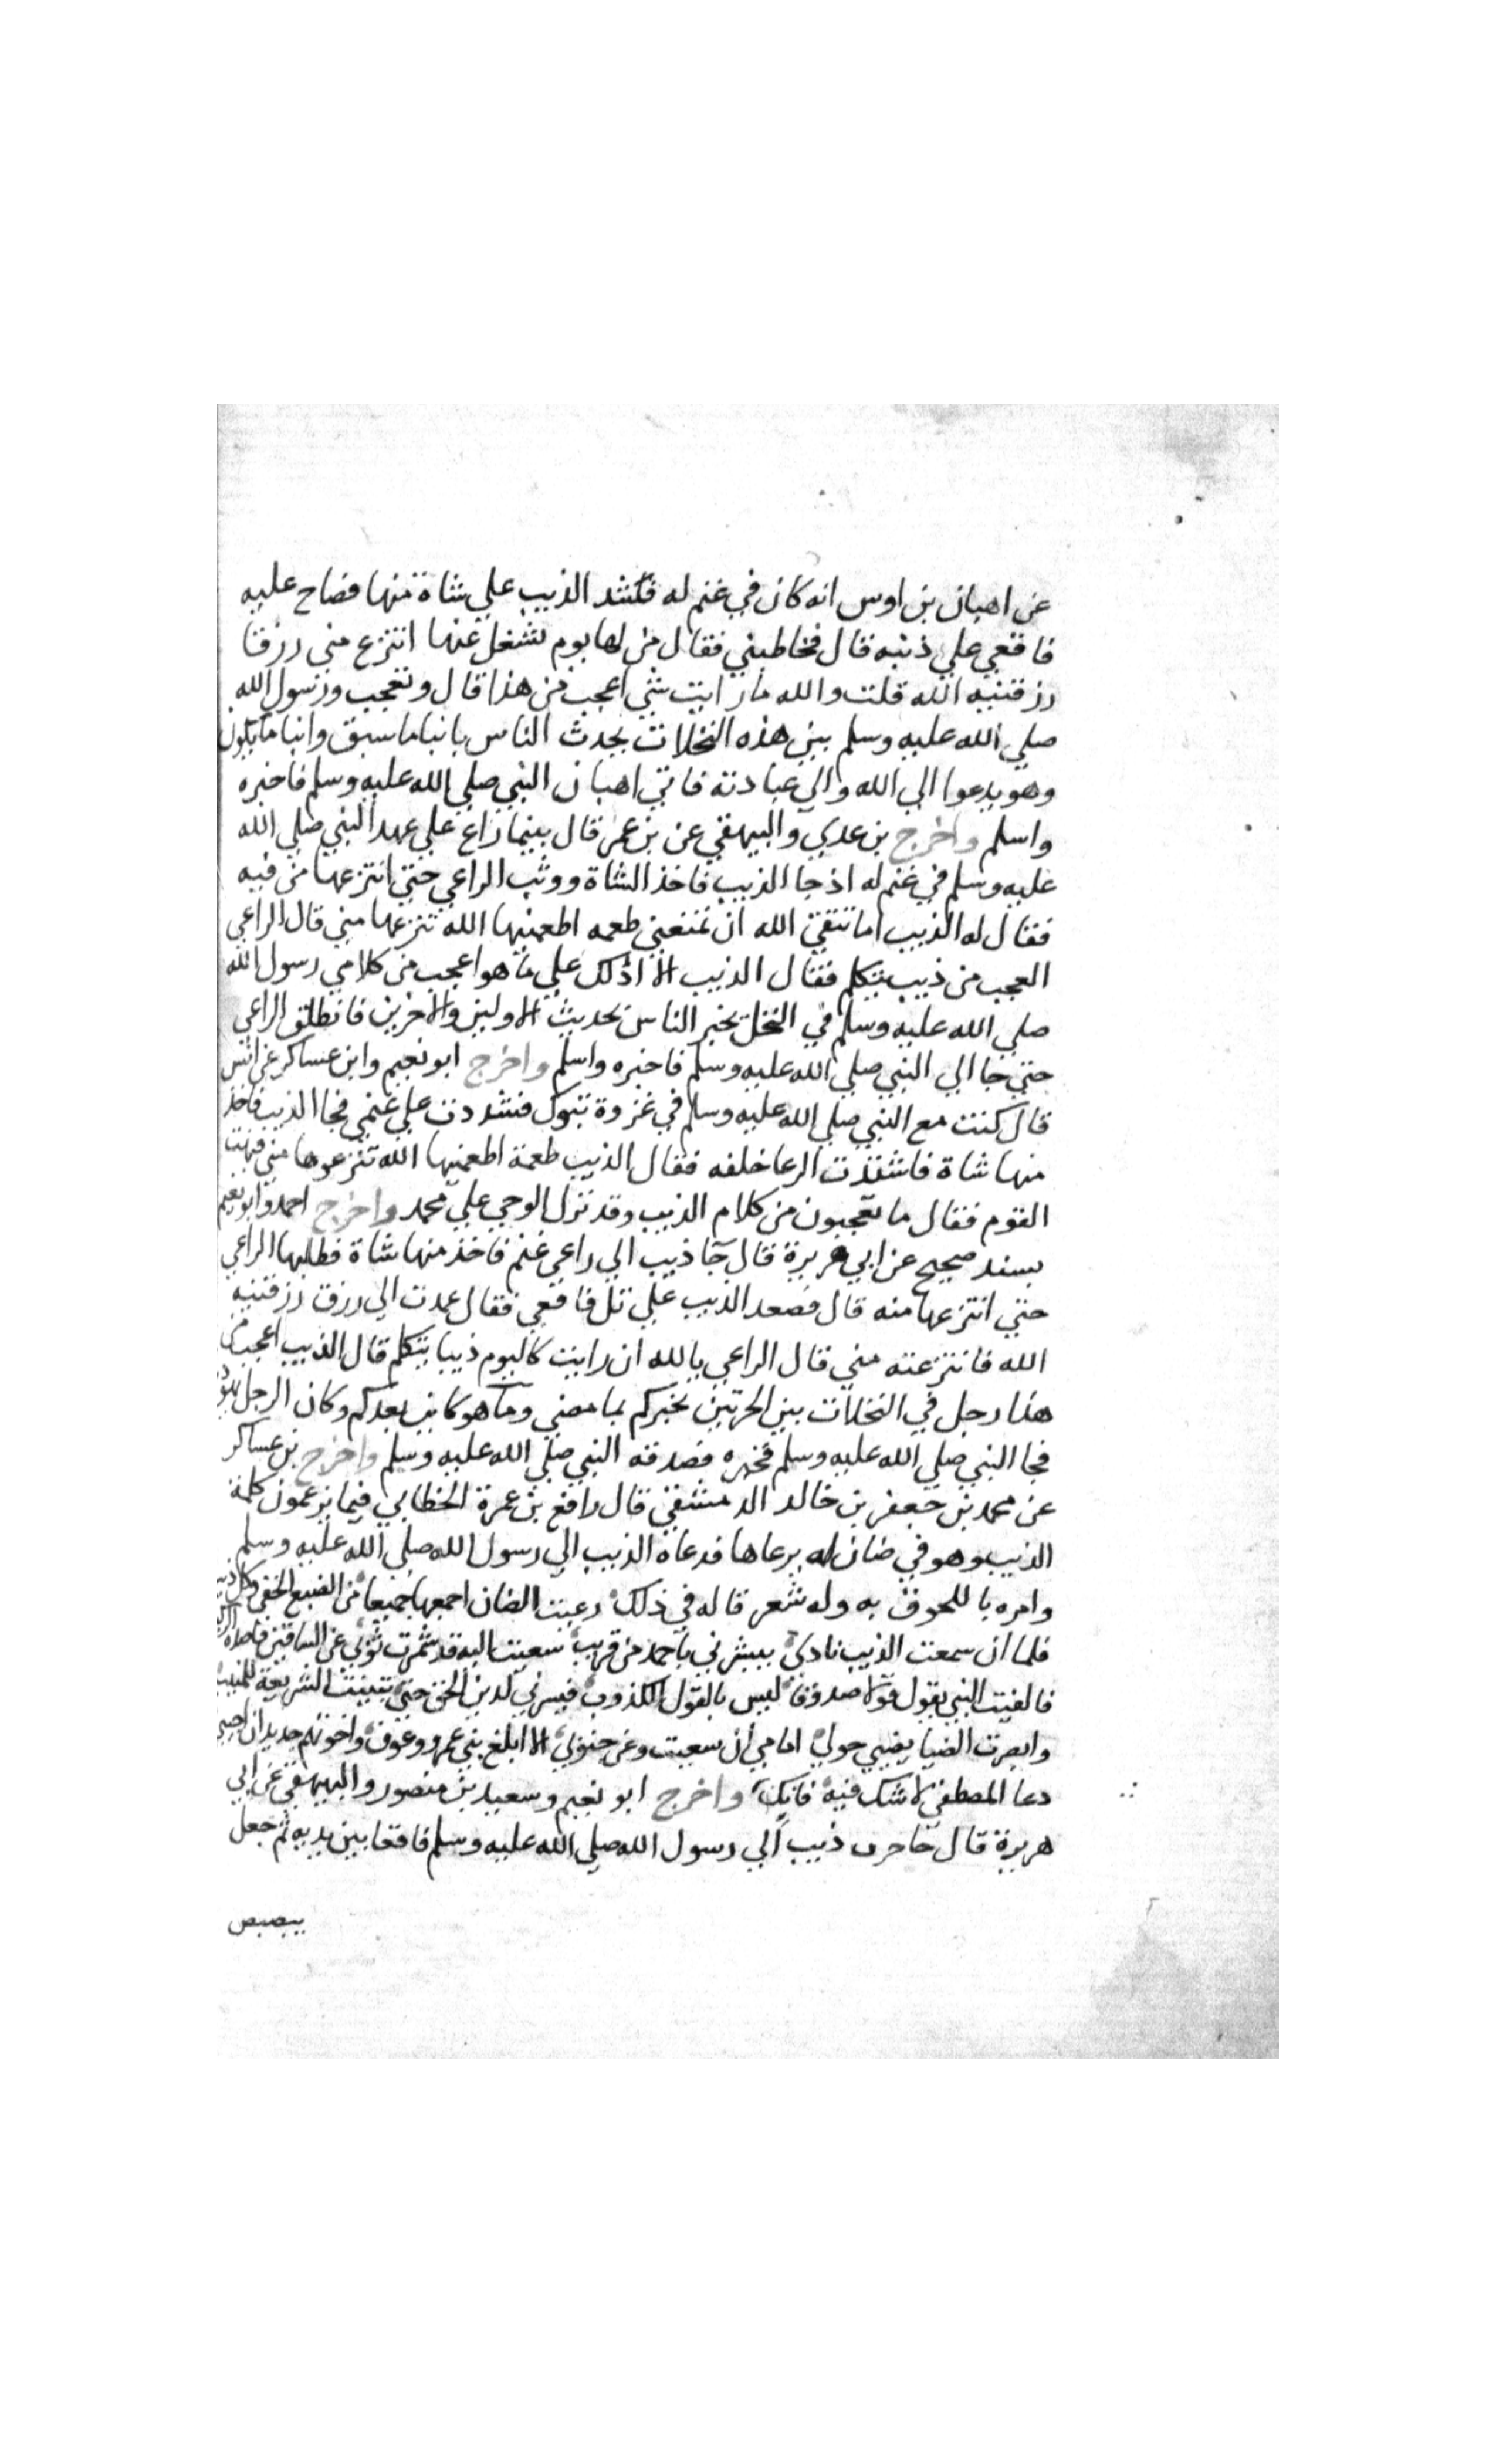 عن اهبان بن اوس انه كان في غنم له فشد الذيب علي شاة منها فصاح عليه
فاقعي علي ذنبه قال فخاطبني فقال من لها يوم تشغل عنها انتزع مني رزقا
رزقنيه الله قلت والله ما رايت شي اعجب من هذا قال وتعجب ورسول الله
صلي الله عليه وسلم بين هذه النخلات يحدث الناس بانبا ما سبق وانبا ما يكون
وهو يدعوا الي الله والي عبادته فاتي اهبان النبي صلي الله عليه وسلم فاخبره
واسلم واخرج بن عدي والبيهقي عن بن عمر قال بينما راع علي عهد النبي صلي الله
عليه وسلم في غنم له اذ جا الذيب فاخذ الشاة ووثب الراعي حتي انتزعها من فيه
فقال له الذيب اما تتقي الله ان تمنعني طعمه اطعمنيها الله تنزعها مني قال الراعي
العجب من ذيب يتكلم فقال الذيب الا ادلك علي ما هو اعجب من كلامي رسول الله
صلي الله عليه وسلم في النخل يخبر الناس بحديث الاولين والاخرين فانطلق الراعي
حتي جا الي النبي صلي الله عليه وسلم فاخبره واسلم واخرج ابو نعيم وابن عساكر عن انس
قال كنت مع النبي صلي الله عليه وسلم في غزوة تبوك فشددت علي غنمي فجا الذيب فاخذ
منها شاة فاشتدت الرعا خلفه فقال الذيب طعمة اطعمنيها الله تنزعوها مني فبهت
القوم فقال ما تعجبون من كلام الذيب وقد نزل الوحي علي محمد واخرج احمد وابو نعيم
بسند صحيح عن ابي هريرة قال جا ذيب الي راعي غنم فاخذ منها شاة فطلبها الراعي
حتي انتزعها منه قال فصعد الذيب علي تل فاقعي فقال عمدت الي رزق رزقنيه
الله فانتزعته مني قال الراعي يا لله ان رايت كاليوم ذيبا يتكلم قال الذيب اعجب من
هذا رجل في النخلات بين الحرتين يخبركم بما مضي وما هو كاين بعدكم وكان الرجل يهود
فجا النبي صلي الله عليه وسلم فخبره فصدقه النبي صلي الله عليه وسلم واخرج بن عساكر
عن محمد بن جعفر بن خالد الدمشقي قال رافع بن عمرة الخطابي فيما يزعمون كلمة
الذيب وهو في ضان له يرعاها فدعاه الذيب الي رسول الله صلي الله عليه وسلم
وامره باللحوق به وله شعر قاله في ذلك رعيت الضان احميها جميعا من الضبع الخفي وكل ذيب
فلما ان سمعت الذيب نادي يبشرني باحمد من قريب سعيت اليه قد شمرت ثوبي عن الساقين قاصده
فالفيت النبي يقول قولا صدوقا ليس بالقول الكذوب فيسرني لدين الحق حتي تبينت الشريعة للمنيب
وابصرت الضيا يضيي حولي امامي ان سعيت وعن جنوبي الا ابلغ بني عمرو وعوف واخوتهم جديد ان اجيبي
دعا المصطفي لا شك فيه فانك واخرج ابو نعيم وسعيد بن منصور والبيهقي عن ابي
هريرة قال جا ذيب الي رسول الله صلي الله عليه وسلم فاقعا بين يديه ثم جعل
يبصبص